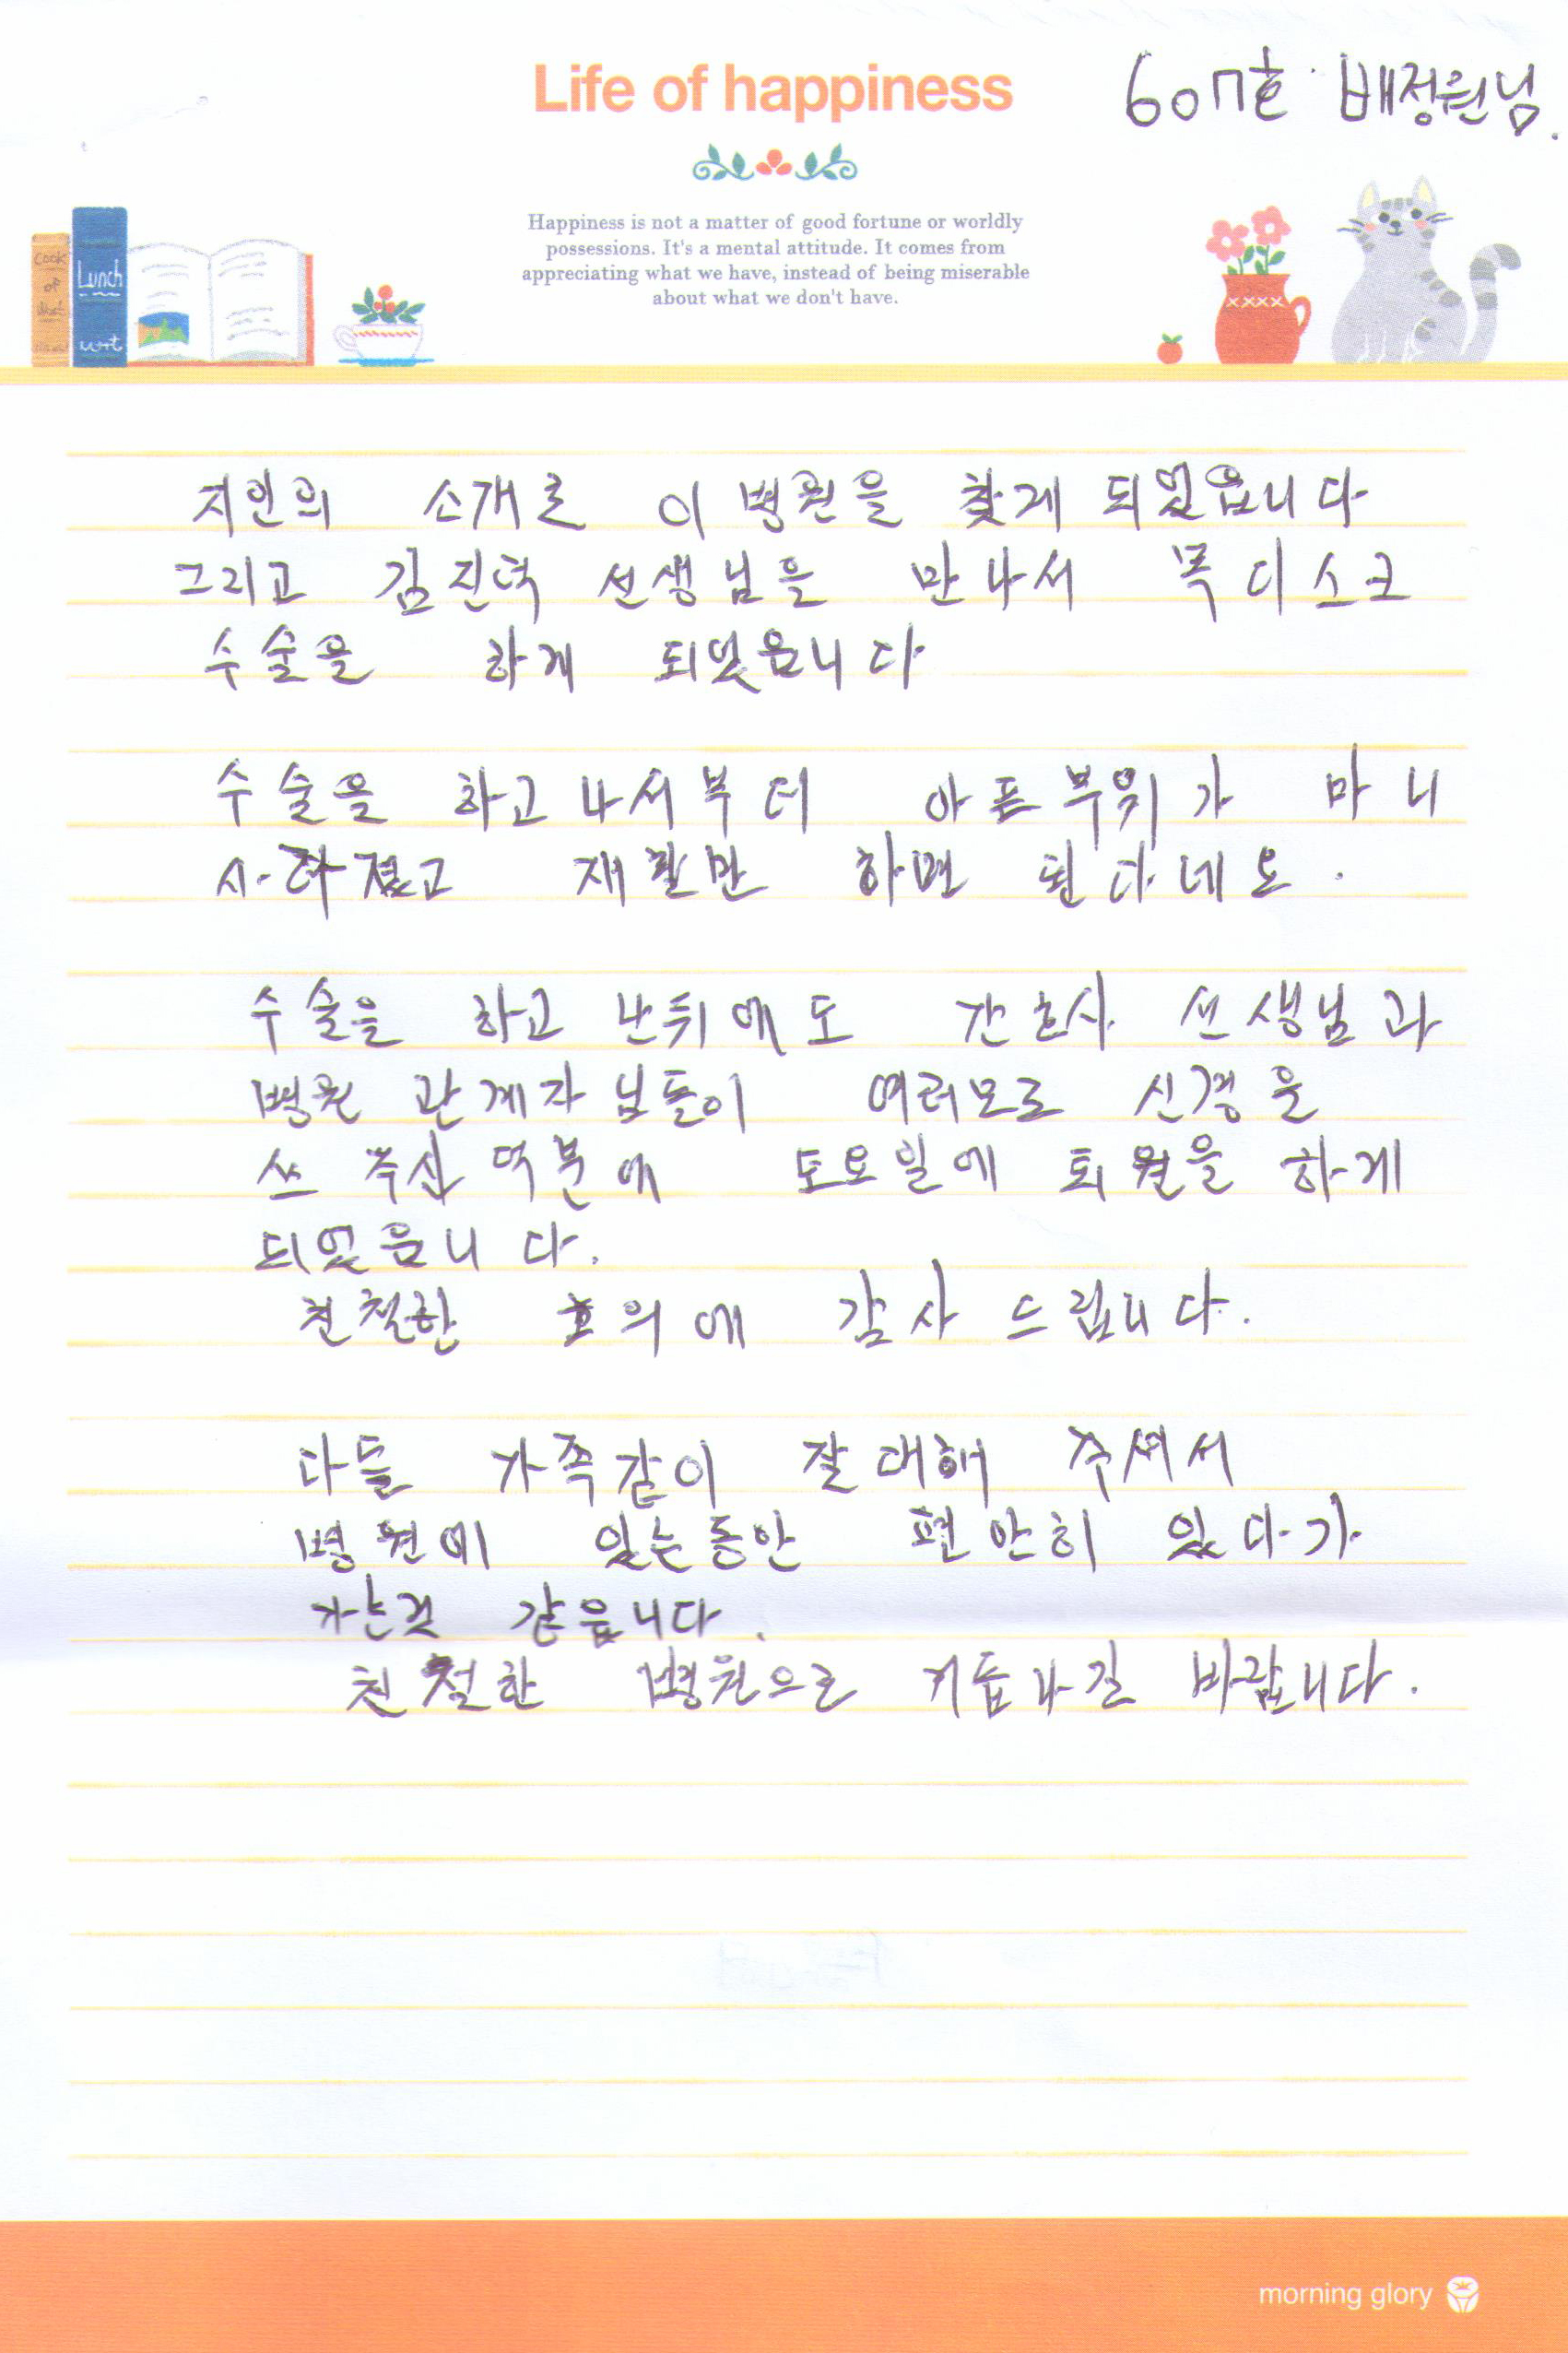 607호 배정원님.
Life of happiness
Happiness is not a matter of good fortune or worldly
possessions. It's a mental attitude. It comes from
appreciating what we have, instead of being miserable
about what we don't have.
Cook
of
Lunch
지인의 소개로 이 병원을 찾게 되었읍니다
그리고 김진덕 선생님을 만나서 목디스크
수술을 하게 되었읍니다
수술을 하고 나서부터 아픈부위가 마니
사라졌고 재활만 하면 된다네요.
수술을 하고 난뒤에도 간호사 선생님과
병원 관계자님들이 여러모로 신경을
쓰 주신 덕분에 토요일에 퇴원을 하게
되었읍니다.
친철한 호의에 감사 드립니다.
다들 가족같이 잘 대해 주셔서
병원에 있는동안 편안히 있다가
가는것 같읍니다.
친철한 병원으로 거듭나길 바랍니다.
morning glory